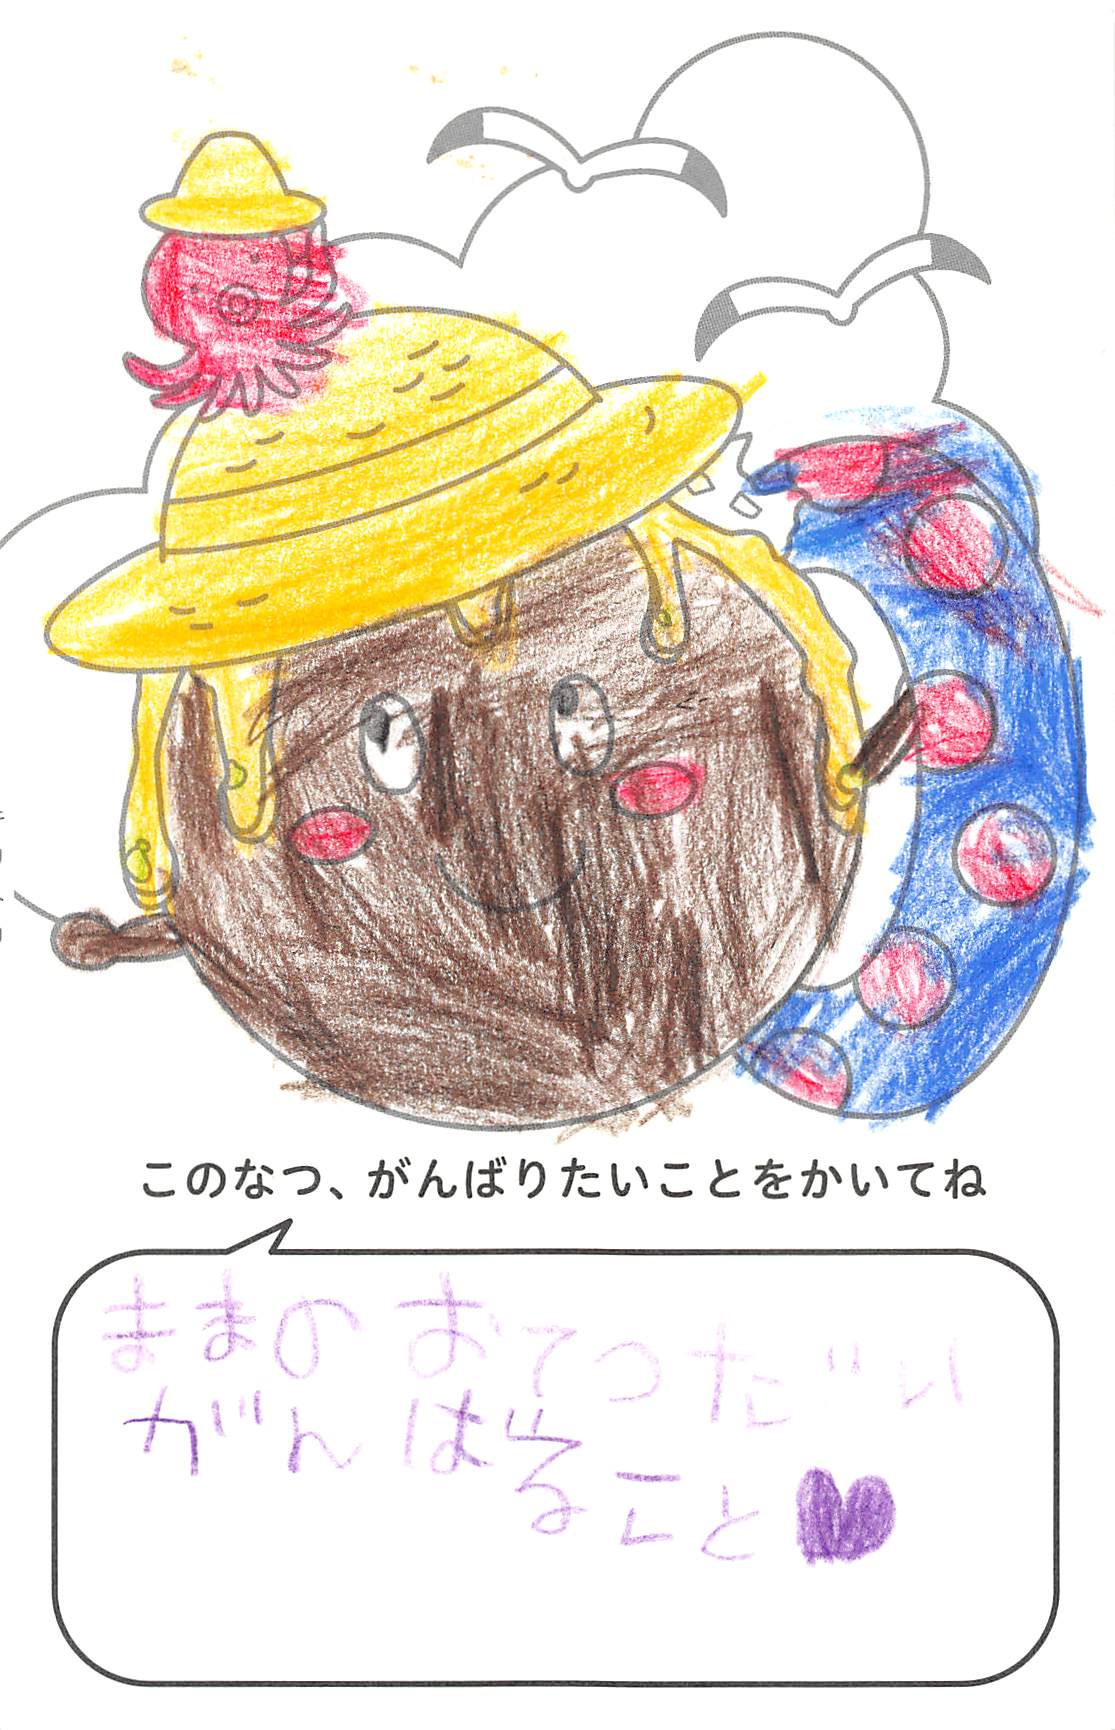 このなつ、がんばりたいことをかいてね
ままのおてつだい
がんばること